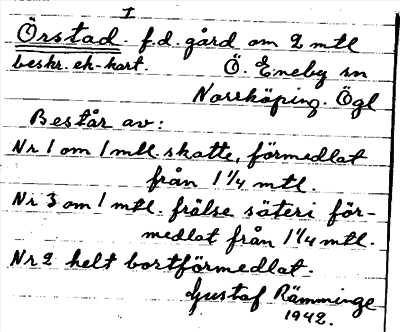 I
Örstad. f.d. gård om 2 mtl
beskr. ek-kart. Ö. Eneby sn
Norrköping. Ögl
Består av:
Nr 1 om 1 mtl. skatte, förmedlat
från 1 1/4 mtl.
Nr 3 om 1 mtl. frälse säteri för-
medlat från 1 1/4 mtl.
Nr 2 helt bortförmedlat.
Gustaf Rämminge
1942.